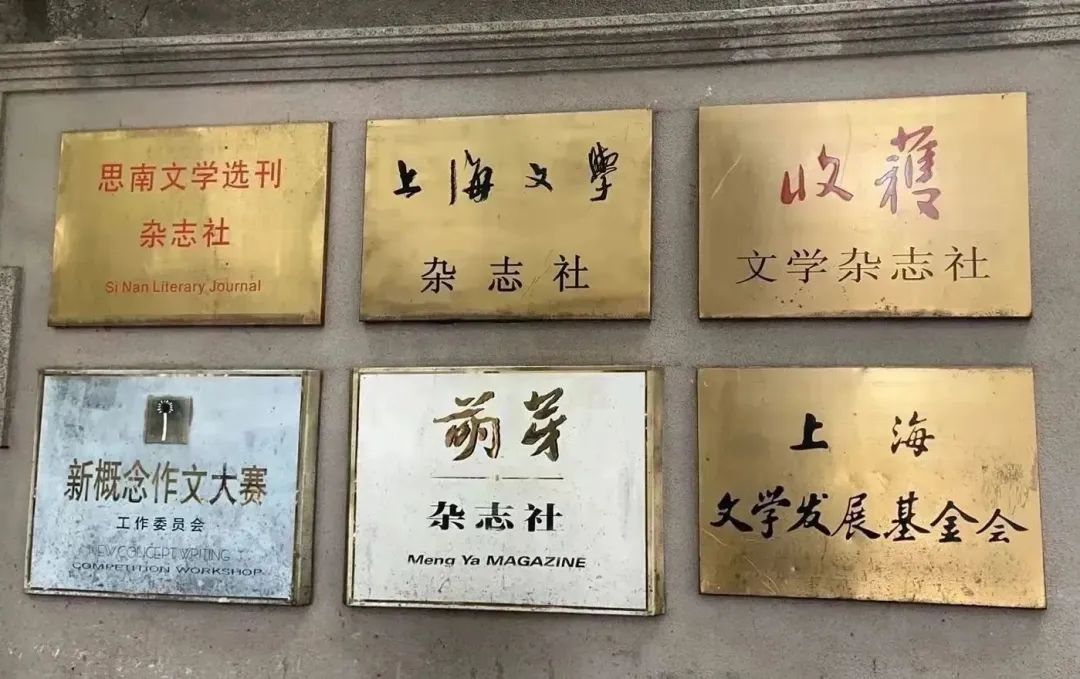 思南文学选刊
杂志社
Si Nan Literary Journal
上海文學
杂志社
收穫
文学杂志社
新概念作文大赛
工作委员会
NEW CONCEPT WRITING
COMPETITION WORKSHOP
萌芽
杂志社
Meng Ya MAGAZINE
上海
文学发展基金会